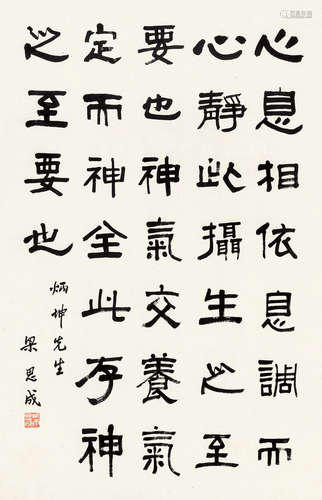 心息相依息調而
心靜此攝生之至
要也神氣交養氣
定而神全此存神
之至要也
炳坤先生
梁思成